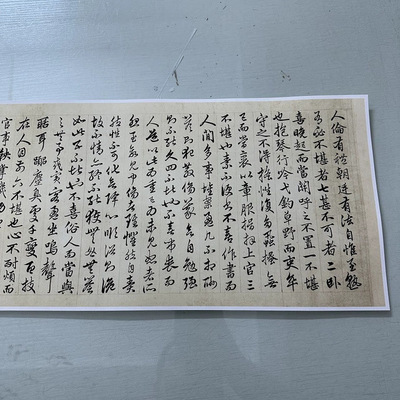 人倫有禮朝廷有法自惟至熟
有必不堪者七甚不可者二卧
喜晚起而當關呼之不置一不堪
也抱琴行吟弋釣草野而吏卒
守之不得搖性復多蝨搔無
已而當裹以章服揖拜上官三
不堪也素不便書不喜作書而
人間多事堆案盈几不相酬
答則犯教傷義欲自勉強
則不能久四不堪也不喜弔喪而
人道以此為重已為未見恕者所
怨至欲見中傷者雖懼然自責
然性不可化欲降心順俗則詭
故不情亦終不能獲無咎無譽
如此五不堪也不喜俗人而當與
之共事或賓客盈坐鳴聲
聒耳囂塵臭處千變百技
在人目前六不堪也心不耐煩而
官事鞅掌